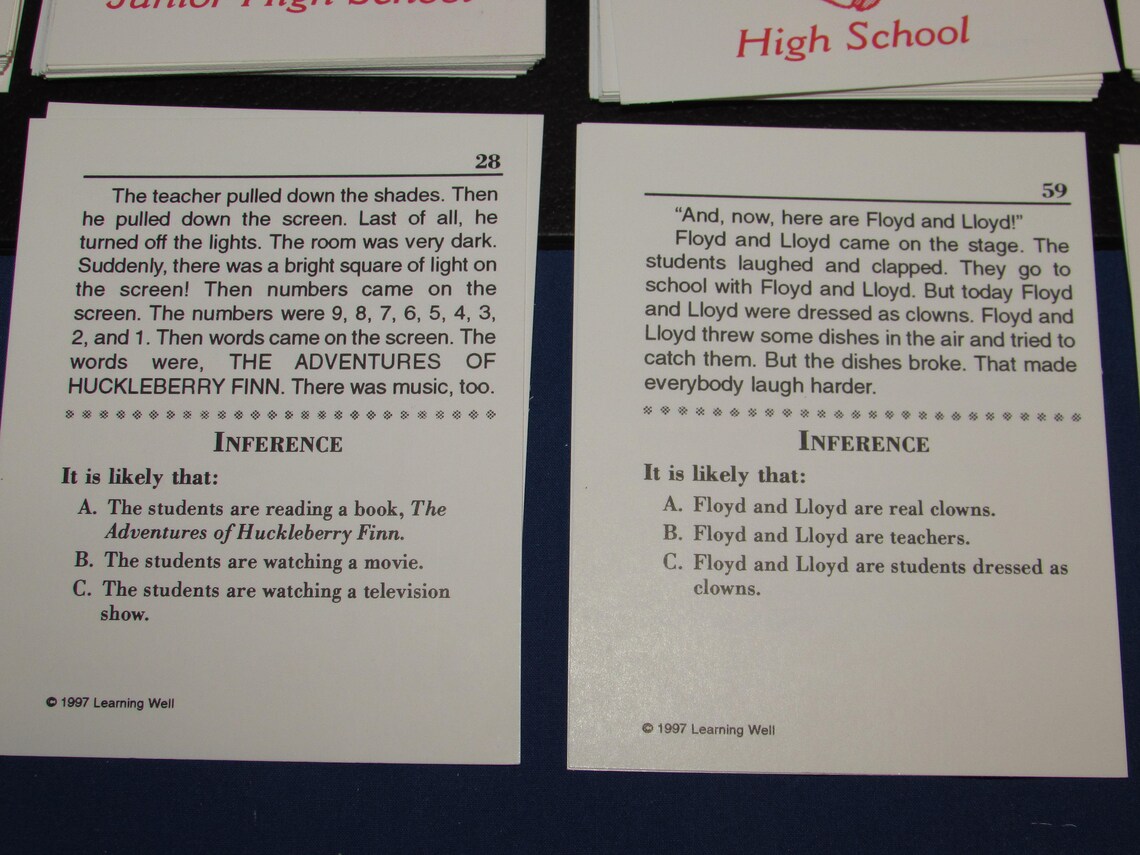 Junior High School
High School
28
The teacher pulled down the shades. Then
he pulled down the screen. Last of all, he
turned off the lights. The room was very dark.
Suddenly, there was a bright square of light on
the screen! Then numbers came on the
screen. The numbers were 9, 8, 7, 6, 5, 4, 3,
2, and 1. Then words came on the screen. The
words were, THE ADVENTURES OF
HUCKLEBERRY FINN. There was music, too.
INFERENCE
It is likely that:
A. The students are reading a book, The
Adventures of Huckleberry Finn.
B. The students are watching a movie.
C. The students are watching a television
show.
© 1997 Learning Well
59
“And, now, here are Floyd and Lloyd!”
Floyd and Lloyd came on the stage. The
students laughed and clapped. They go to
school with Floyd and Lloyd. But today Floyd
and Lloyd were dressed as clowns. Floyd and
Lloyd threw some dishes in the air and tried to
catch them. But the dishes broke. That made
everybody laugh harder.
INFERENCE
It is likely that:
A. Floyd and Lloyd are real clowns.
B. Floyd and Lloyd are teachers.
C. Floyd and Lloyd are students dressed as
clowns.
© 1997 Learning Well